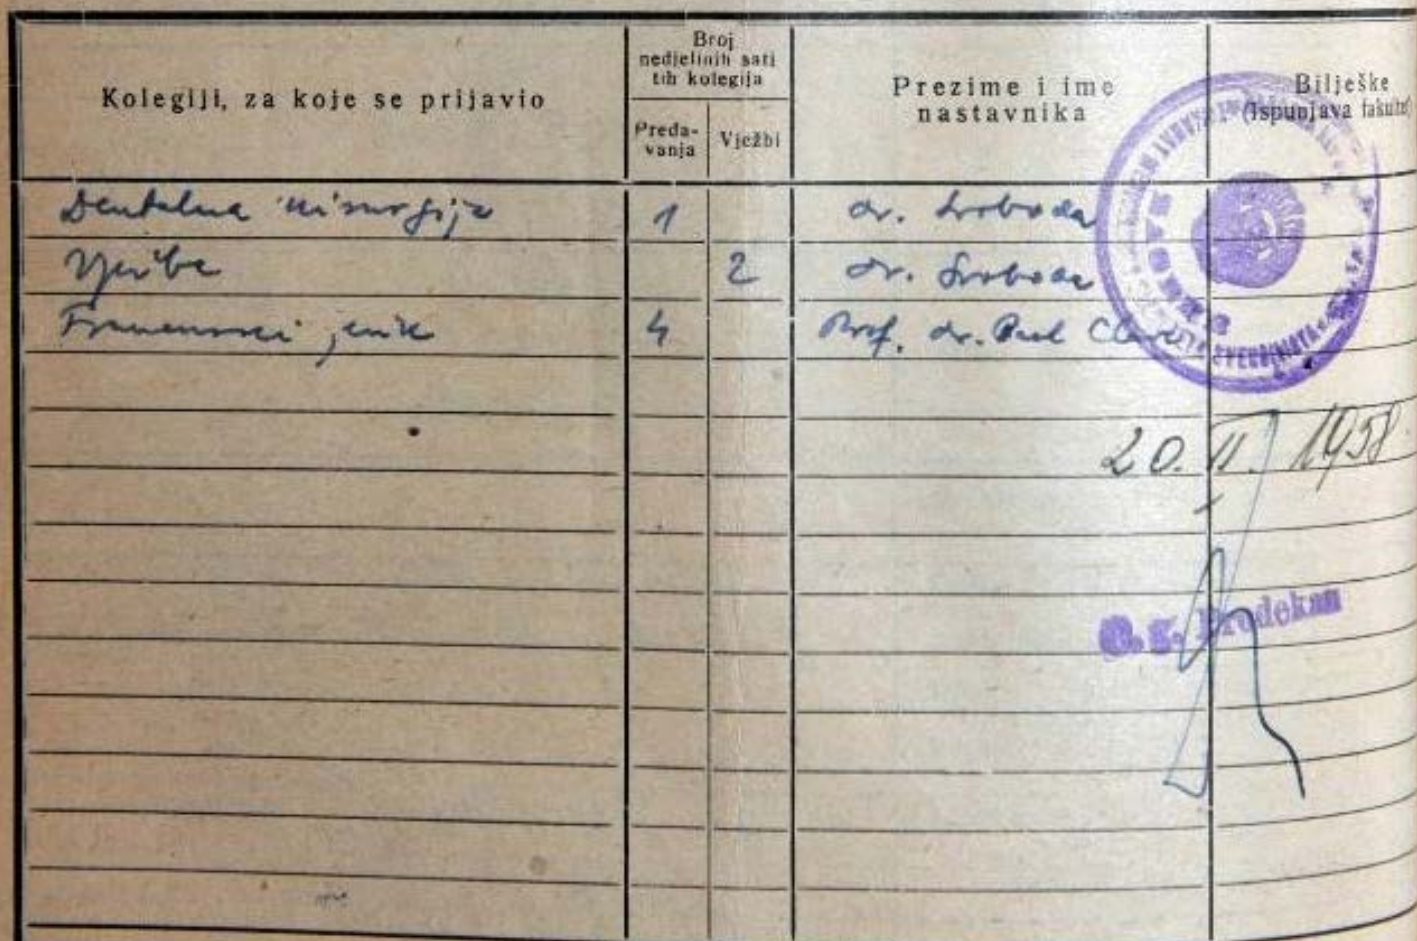 Kolegiji, za koje se prijavio
Broj
nedjeljnih sati
tih kolegija
Preda-
vanja
Vježbi
Prezime i ime
nastavnika
Bilješke
(Ispunjava fakultet)
Dentalna kirurgija 1 dr. Svoboda
Vježbe 2 dr. Svoboda
Francuski jezik 4 Prof. dr. Paul
20. II. 1958.
Prodekan